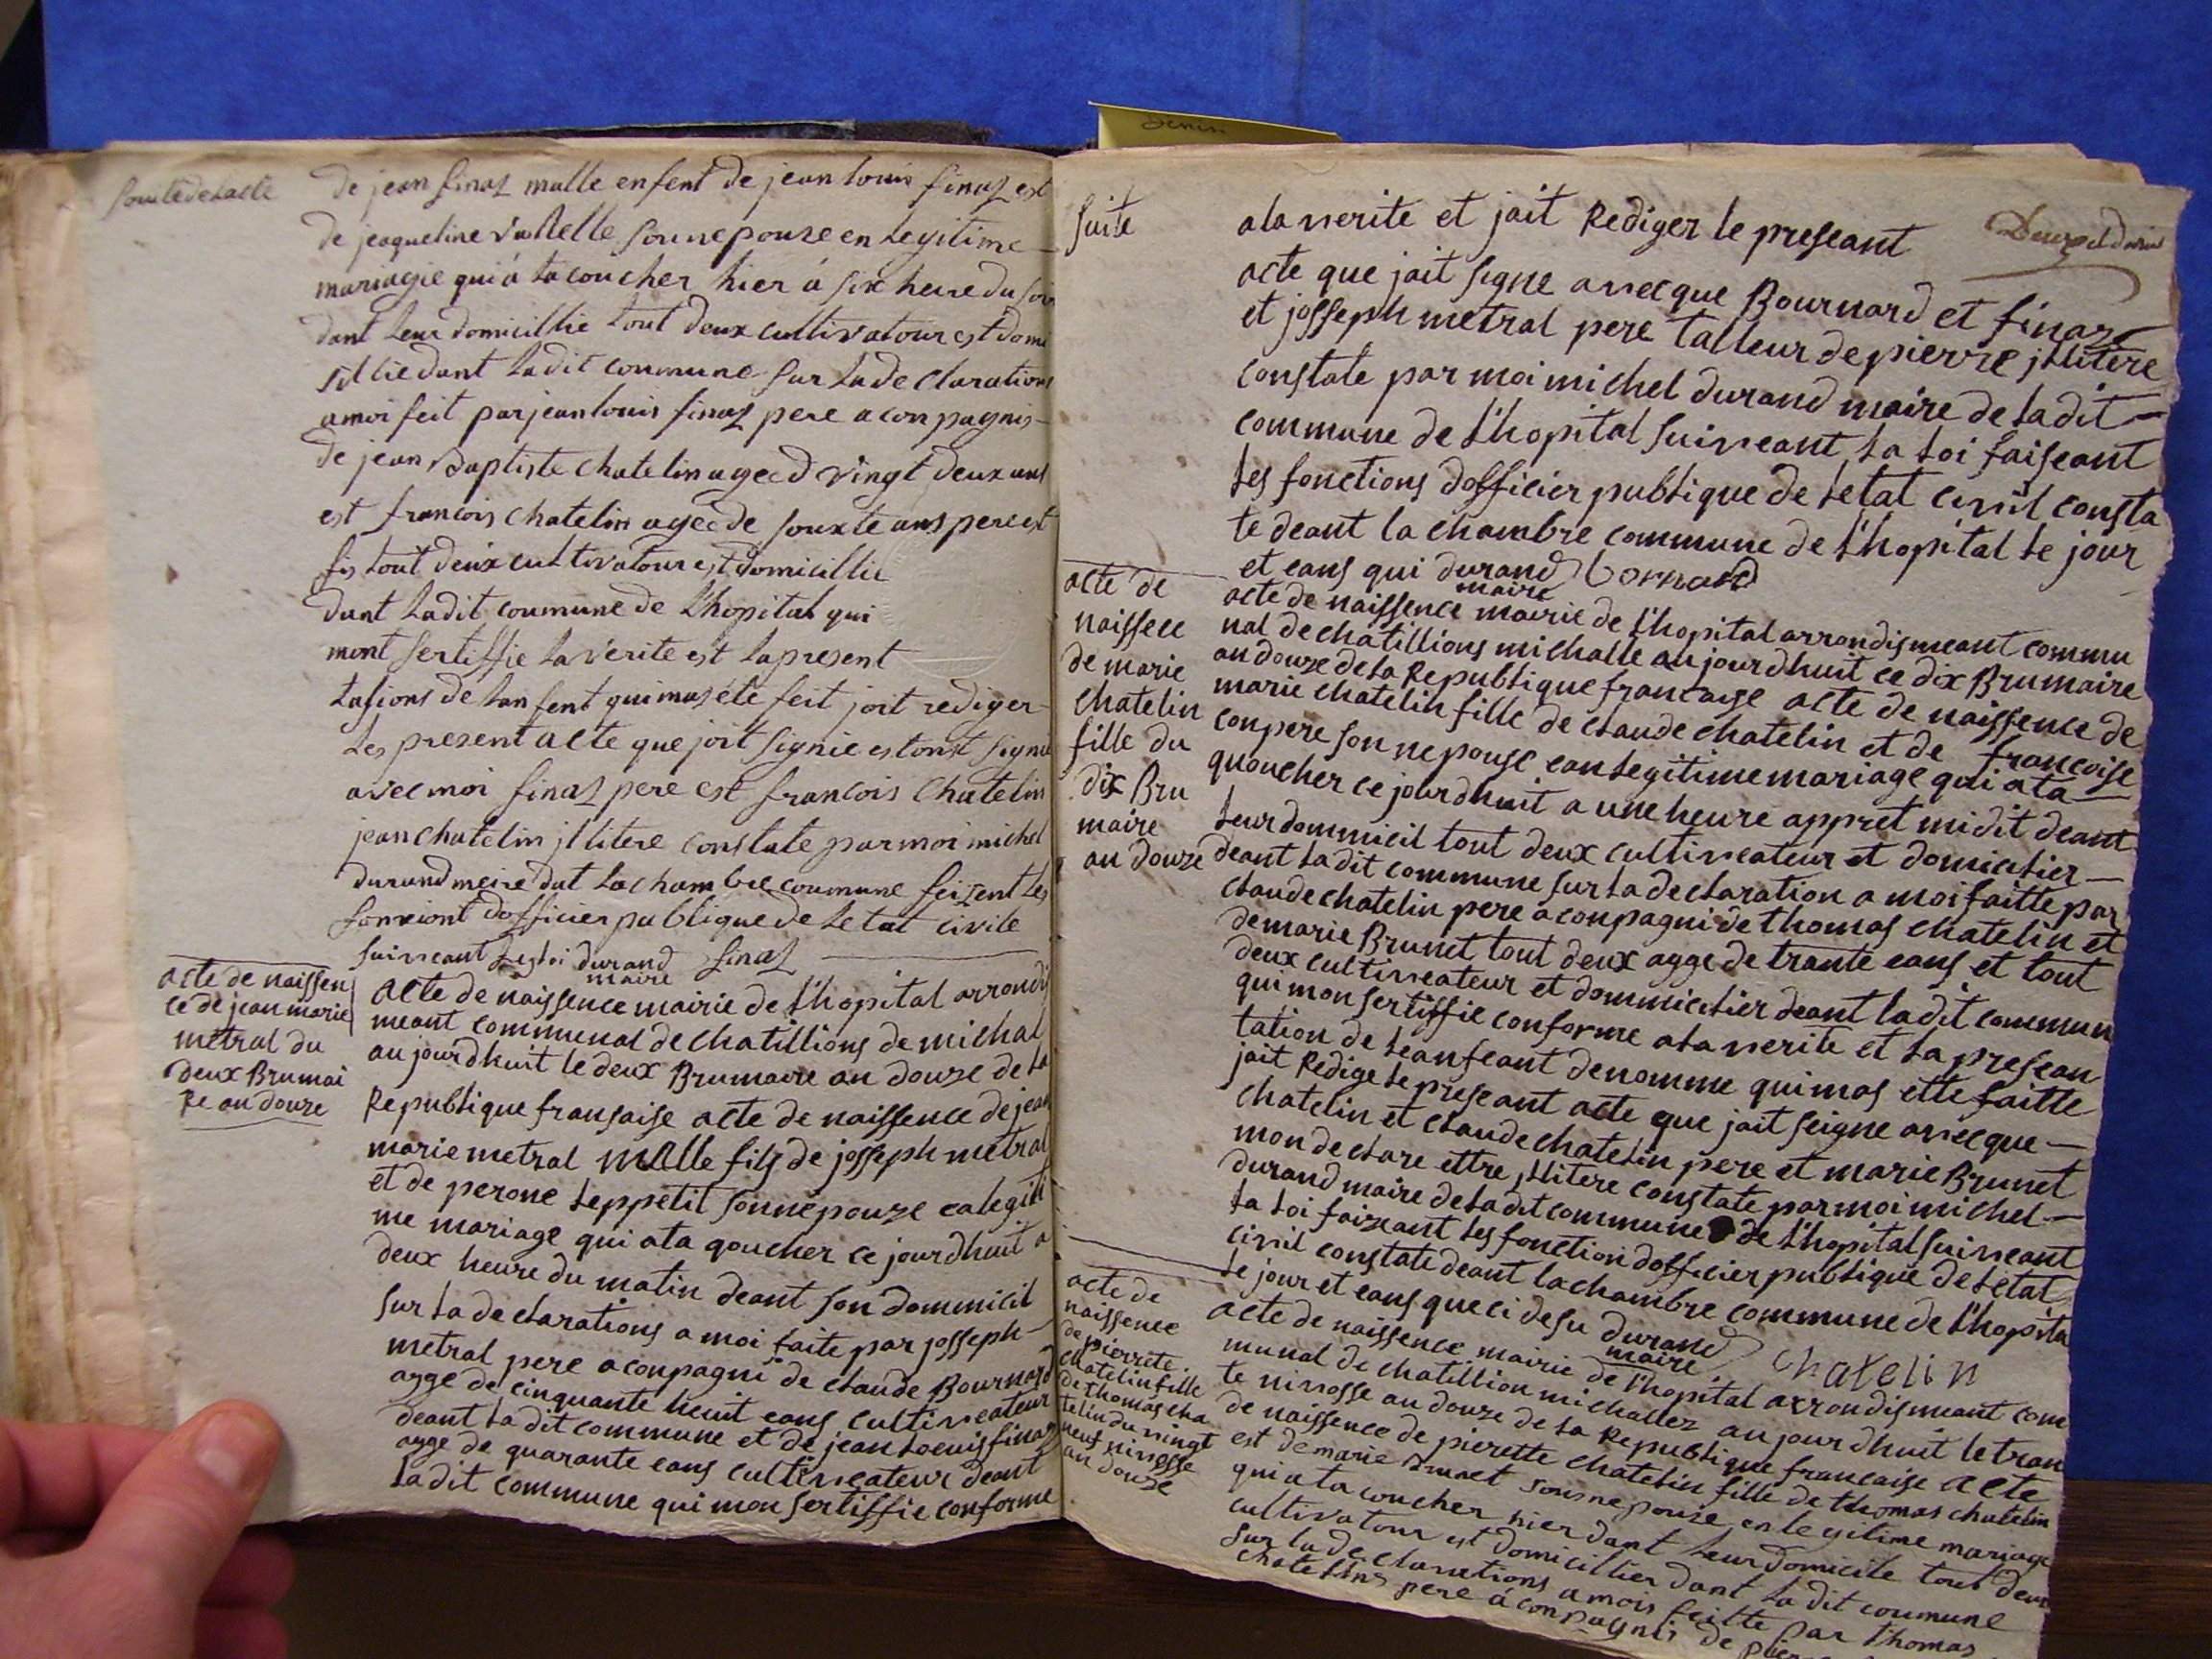 suite de lacte
de jean finaz malle enfent de jean louis finaz est
de jeaqueline vuaelle sonnepouze en legitime
mariagie qui á tacoucher hier á six heure du soir
dant leur domicillie tout deux cultivatour est domi
sillie dant ladit coumune sur lade clarations
a moi feit par jean louis finaz pere a con pagnis
de jean Baptiste chatelin agee d vingt deux ans
est francois chatelin agee de souxte ans pere est
fis tout deux cultivatour est domicillie
dant ladit coumune de l'hopital qui
mont sertiffie la verite est lapresent
tasions de lan fent qui mas été feit joit rediger
les present acte que joit signie es tonst signie
avec moi finaz pere est francois chatelin
jean chatelin jllitere constate par moi michel
durand meire dat la chambre coumune feizent les
fonxiont dofficier publique de letat civile
suivant les loi durand finaz
maire
acte de naissen
ce de jean marie
metral du
deux Brumai
re an douze
acte de naissence mairie de l'hopital arrondis
meant communal de chatillions de michal
au jourdhuit le deux Brumaire an douze de la
Republique fransaise acte de naissence de jean
marie metral malle fils de josseph metral
et de perone Leppetit sonnepouze ealegiti
me mariage qui ata qoucher ce jourdhuit a
deux heure du matin deant son dommicil
sur la declarations a moi faite par josseph
metral pere aconpagni de claude Bournard
agge de cinquante heuit eans cultiveateur
deant ladit commune et de jean Loeuis finaz
agge de quarante eans cultiveateur deant
ladit commune qui mon sertiffie conforme
suite
ala verite et jait Rediger le preseant
acte que jait signe avecque Bournard et finaz
et josseph metral pere talleur de pierre jllitere
constate par moi michel durand maire de ladit
commune de l'hopital suiveant la loi faiseant
les fonctions dofficier publique de letat civil consta
te deant la chambre commune de l'hopital le jour
et eans qui durand bornard
maire
acte de
naissece
de marie
chatelin
fille du
dix Bru
maire
an douze
acte de naissence mairie de l'hopital arrondismeant commu
nal de chatillions michalle aujourdhuit ce dix Brumaire
an douze de la Republique francaise acte de naissence de
marie chatelin fille de claude chatelin et de francoise
conpere sonnepouse ean legitime mariage qui ata
quoucher ce jourdhuit a une heure appret midit deant
leur dommicil tout deux cultiveateur et domicilier
deant ladit commune sur la declaration a moi faitte par
claude chatelin pere aconpagni de thomas chatelin et
de marie Brunet tout deux agge de trante eans et tout
deux cultiveateur et dommicilier deant ladit commun
qui mon sertiffie conforme ala verite et la presean
tation de leanfeant denomme qui mas ette faitte
jait Redige le preseant acte que jait seigne avecque
chatelin et claude chatelin pere et marie Brunet
mon declare ettre jllitere constate par moi michel
durand maire de ladit commune de l'hopital suiveant
la loi faizeant les fonction dofficier publique de letat
civil constate deant la chambre commune de l'hopita
le jour et eans que ci desu durand chatelin
maire
acte de
naissence
de pierrete
chatelin fille
de thomas cha
telin du vingt
neuf nivosse
an douze
acte de naissence mairie de l'hopital arrondismeant com
munal de chatillion michallez aujourdhuit le tran
te nivosse an douze de la Republique francaise acte
de naissence de pierette chatelin fille de thomas chatelin
est de marie Brunet sonnepouze en legitime mariage
qui a ta coucher hier dant leur domicile tout deux
cultivatour est domicillier dant ladit coumune
sur lade clarations a mois feitte par thomas
chatelins pere á conpagnis de